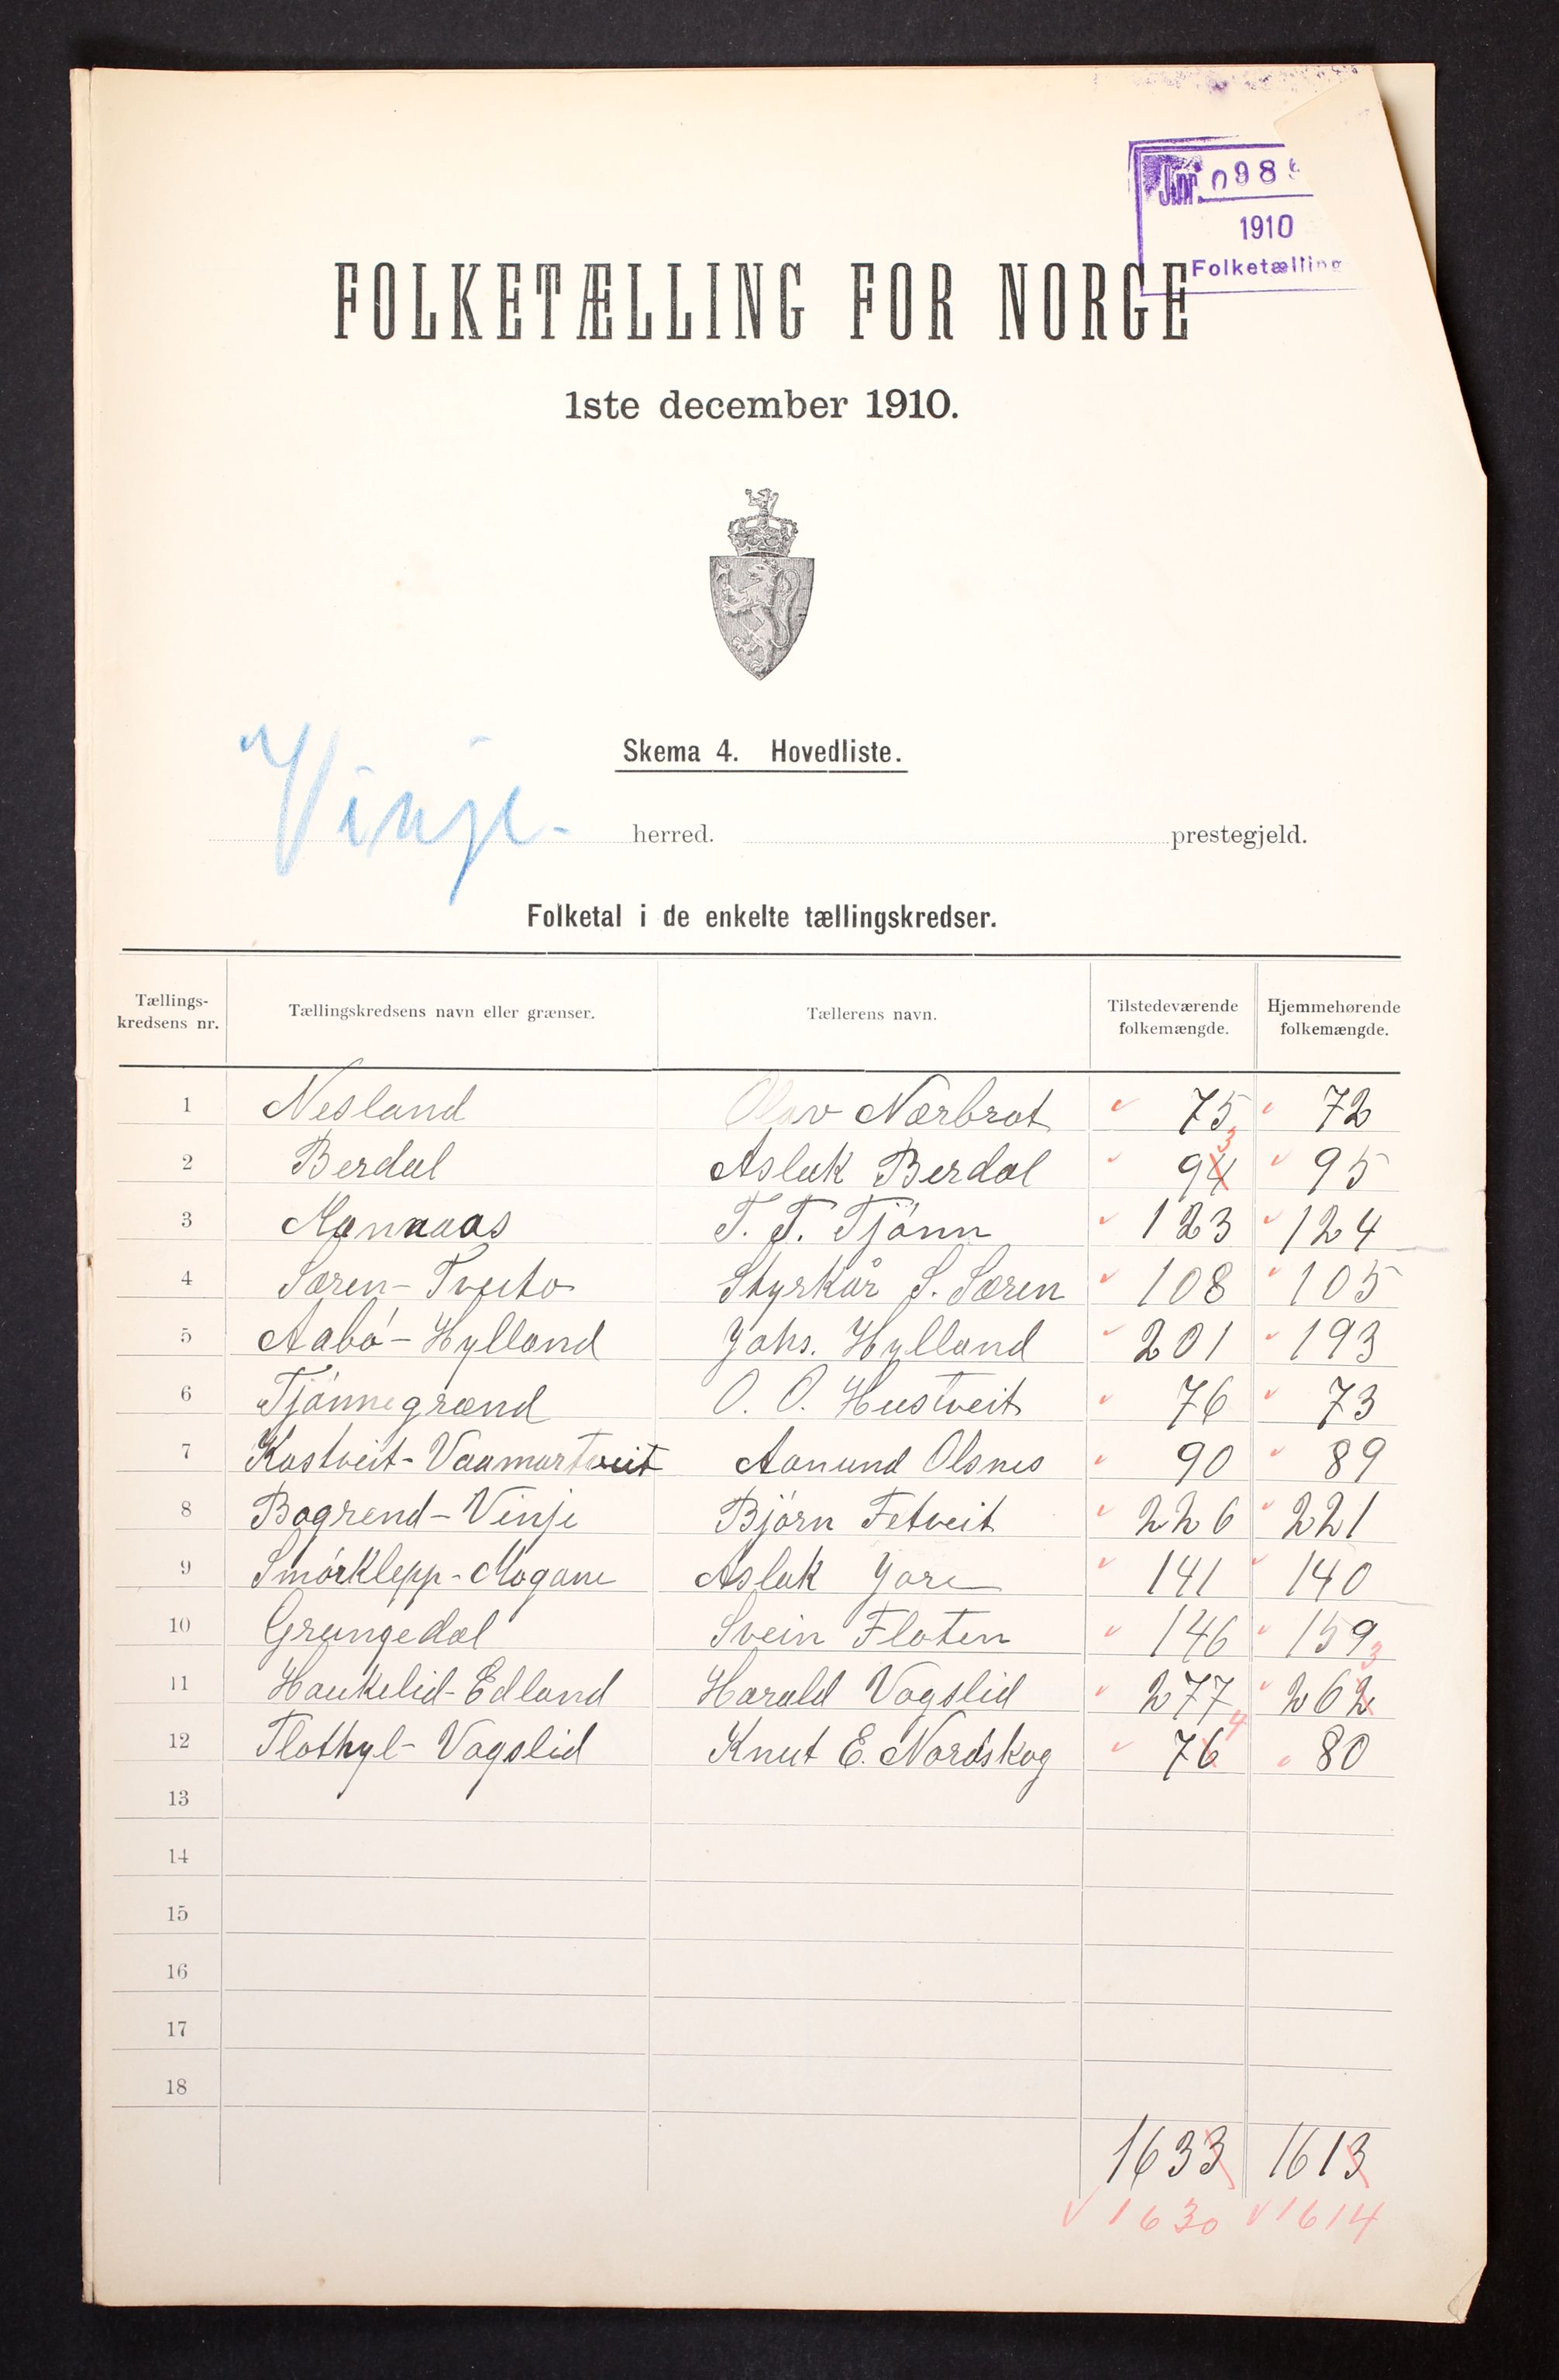 Jnr. 098
1910
Folketælling
FOLKETÆLLING FOR NORGE
1ste december 1910.
Skema 4. Hovedliste.
Vinje- herred. prestegjeld.
Folketal i de enkelte tællingskredser.
Tællings-kredsens nr. Tællingskredsens navn eller grænser. Tællerens navn. Tilstedeværende folkemængde. Hjemmehørende folkemængde.
1 Nesland Olav Nærbrot 75 72
2 Berdal Aslak Berdal 94 3 95
3 Mannaas T. T. Tjönn 123 124
4 Særen-Tveito Styrkår S. Særen 108 105
5 Aabö-Hylland Johs. Hylland 201 193
6 Tjönnegrænd O. O. Hustveit 76 73
7 Kostveit-Vaamartveit Aanund Olsnes 90 89
8 Bøgrend-Vinje Björn Fetveit 226 221
9 Smörklepp-Mogane Aslak Jore 141 140
10 Grungedal Svein Floten 146 159
11 Haukelid-Edland Harald Vågslid 277 262 3
12 Flothyl-Vågslid Knut E. Nordskog 76 4 80
13
14
15
16
17
18
1633 1613
1630 1614